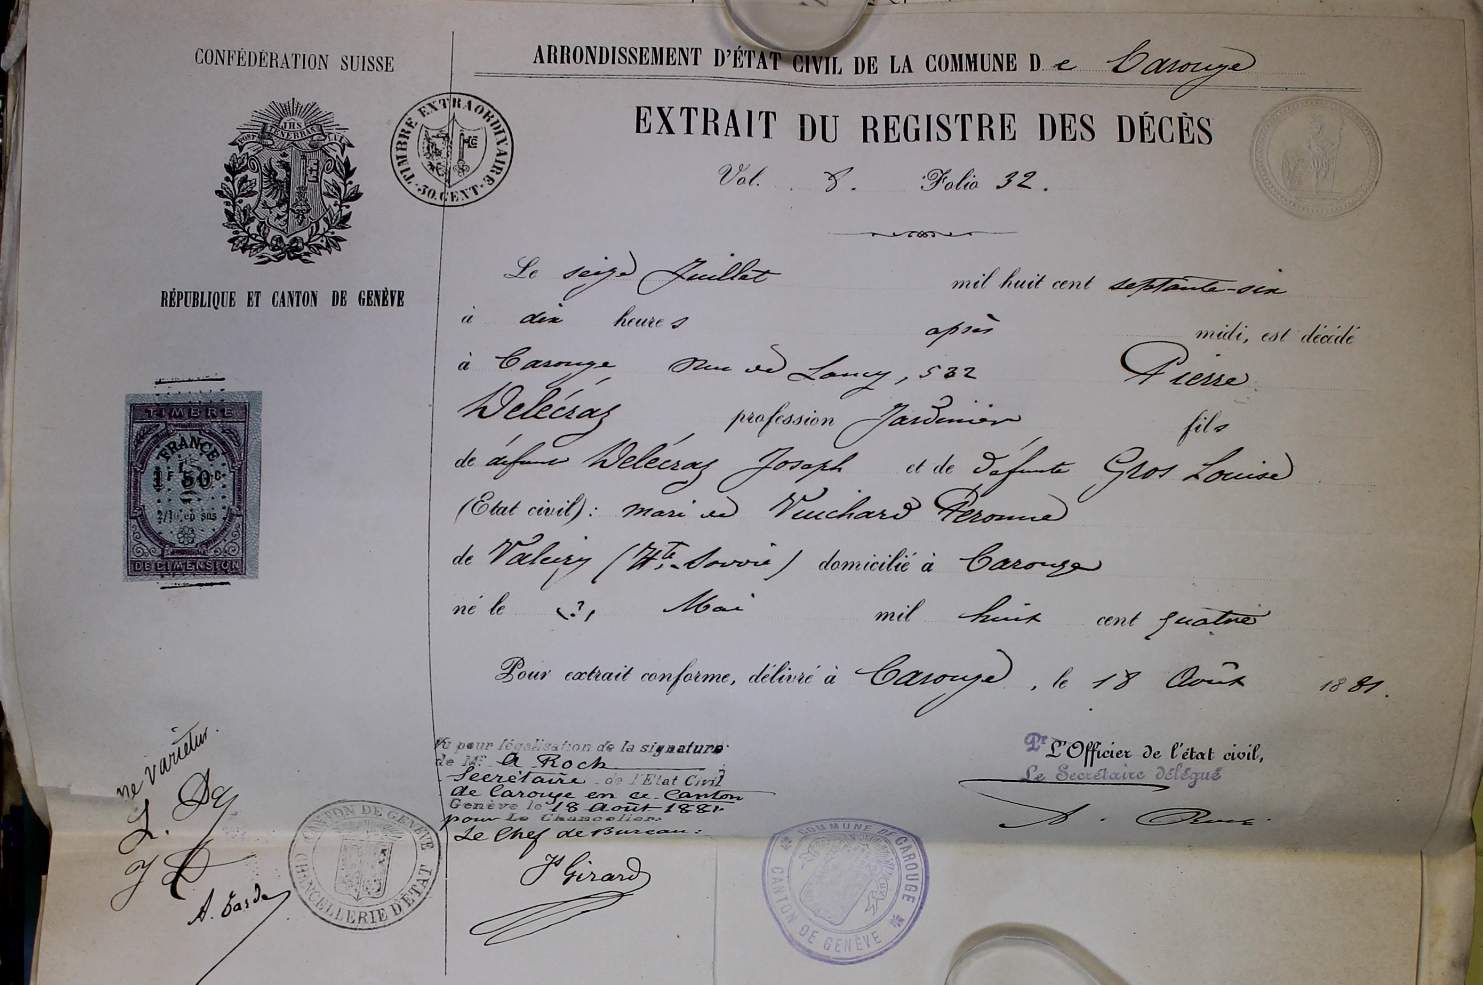 CONFÉDÉRATION SUISSE
POST TENEBRAS LUX
RÉPUBLIQUE ET CANTON DE GENÈVE
TIMBRE EXTRAORDINAIRE
30. CENT.
ARRONDISSEMENT D'ÉTAT CIVIL DE LA COMMUNE De Carouge
EXTRAIT DU REGISTRE DES DÉCÈS
Vol. 8. Folio 32.
Le seize Juillet mil huit cent septante-six
à dix heures après midi, est décédé
à Carouge Rue de Lancy, 532 Pierre
Delécraz profession Jardinier fils
de défunt Delécraz Joseph et de défunte Gros Louise
(Etat civil): mari de Vuichard Péronne
de Valeiry (Hte-Savoie) domicilié à Carouge
né le (?) Mai mil huit cent quatre
Pour extrait conforme, délivré à Carouge, le 18 Août 1881.
TIMBRE
FRANCE
1F 50C
2/10 en sus
DE DIMENSION
Vu pour légalisation de la signature
de Mr. A. Roch
Secrétaire de l'Etat Civil
de Carouge en ce Canton
Genève le 18 Août 1881.
pour Le Chancelier
Le Chef de Bureau:
Js Girard
Pr L'Officier de l'état civil,
Le Secrétaire délégué
A. Roch
ne varietur.
CANTON DE GENÈVE
CHANCELLERIE D'ÉTAT
COMMUNE DE CAROUGE
CANTON DE GENÈVE